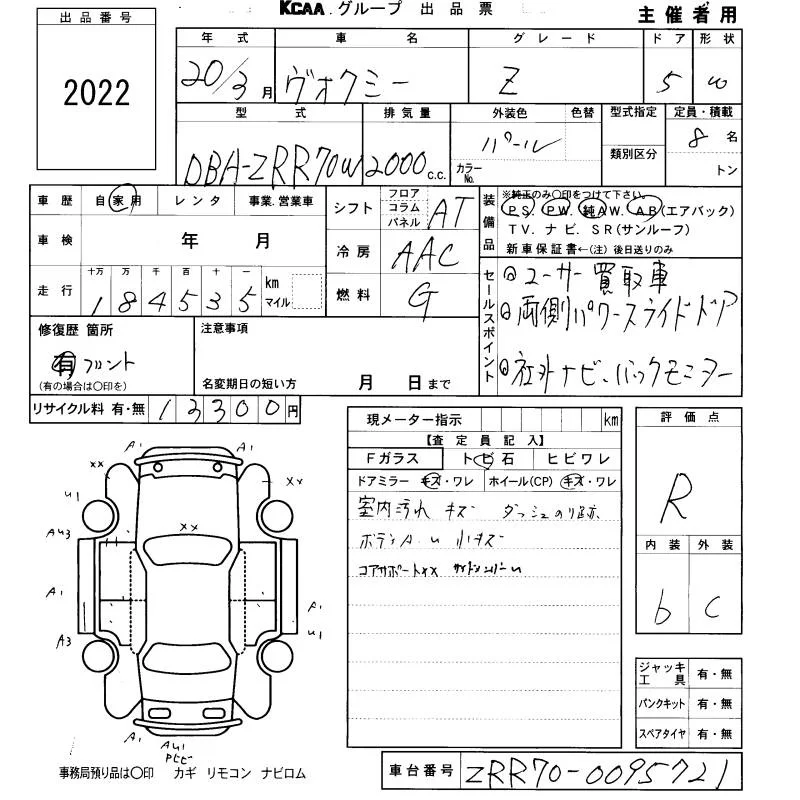 KCAA.グループ 出品票
主催者用
出品番号
2022
年式 車名 グレード ドア 形状
20/3月 ヴォクシー Z 5 W
型式 排気量 外装色 色替 型式指定 定員・積載
DBA-ZRR70W 2000c.c. パール カラーNo. 類別区分 8名
トン
車歴 自家用 レンタ 事業.営業車
シフト フロア コラム パネル AT
装備品 ※純正のみ〇印をつけて下さい。
PS. PW. 純AW. AB(エアバック)
TV. ナビ. SR(サンルーフ)
新車保証書←(注)後日送りのみ
車検 年 月
冷房 AAC
走行 十万 万 千 百 十 一 km マイル
184535
燃料 G
セールスポイント
ユーザー買取車
両側パワースライドドア
社外ナビ.バックモニター
修復歴 箇所
有 フロント
(有の場合は〇印を)
注意事項
名変期日の短い方 月 日まで
リサイクル料 有・無 13300円
現メーター指示 km
【査定員記入】
Fガラス トビ石 ヒビワレ
ドアミラー キズ・ワレ ホイール(CP) キズ・ワレ
室内汚れ キズ ダッシュのり跡
ボディA.U 小キズ
コアサポートxx サイドメンバーU
評価点
R
内装 外装
b C
ジャッキ工具 有・無
パンクキット 有・無
スペアタイヤ 有・無
A1 A1
xx xx
U1
AU3
xx
A1
A1
U1
A3
A1 AU1 A1
トビビ
事務局預り品は〇印 カギ リモコン ナビロム
車台番号 ZRR70-0095721